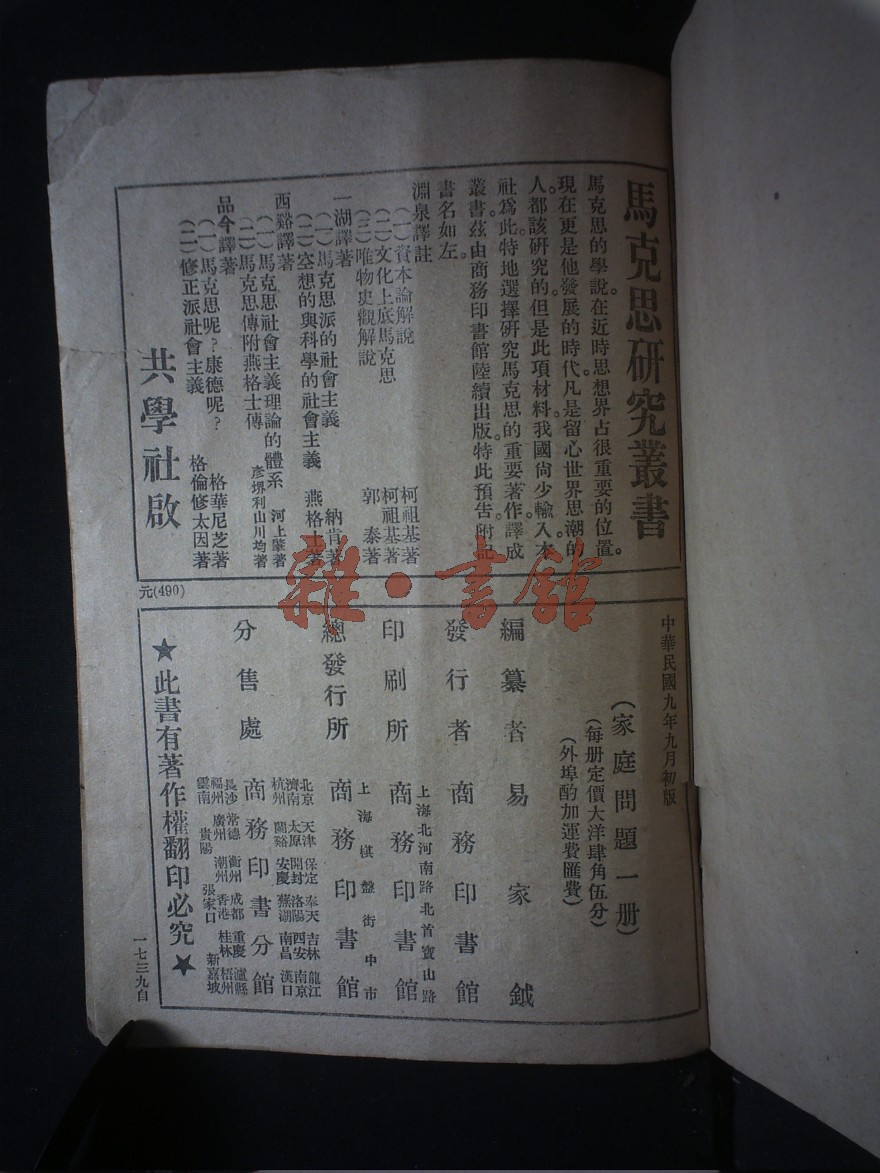 馬克思研究叢書
馬克思的學說。在近時思想界占很重要的位置。
現在更是他發展的時代。凡是留心世界思潮的
人。都該研究的。但是此項材料。我國尚少輸入。本
社為此。特地選擇研究馬克思的重要著作。譯成
叢書。茲由商務印書館陸續出版。特此預告。附記
書名如左。
淵泉譯註
(一)資本論解說 柯祖基著
(二)文化上底馬克思 柯祖基著
(三)唯物史觀解說 郭泰著
一湖譯著
(一)馬克思派的社會主義 納肯著
(二)空想的與科學的社會主義 燕格士著
西谿譯著
(一)馬克思社會主義理論的體系 河上肇著
(二)馬克思傳附燕格士傳 彥堺利山川均著
品今譯著
(一)馬克思呢?康德呢? 格華尼芝著
(二)修正派社會主義 格倫修太因著
共學社啟
元(490)
中華民國九年九月初版
(家庭問題一册)
(每册定價大洋肆角伍分)
(外埠酌加運費匯費)
編纂者 易家鉞
發行者 商務印書館
上海北河南路北首寶山路
印刷所 商務印書館
上海棋盤街中市
總發行所 商務印書館
北京 天津 保定 奉天 吉林 龍江
濟南 太原 開封 洛陽 西安 南京
杭州 蘭谿 安慶 蕪湖 南昌 漢口
分售處 商務印書分館
長沙 常德 衡州 成都 重慶 瀘縣
福州 廣州 潮州 香港 桂林 梧州
雲南 貴陽 張家口 新嘉坡
★此書有著作權翻印必究★
一七三九自
雜·書館